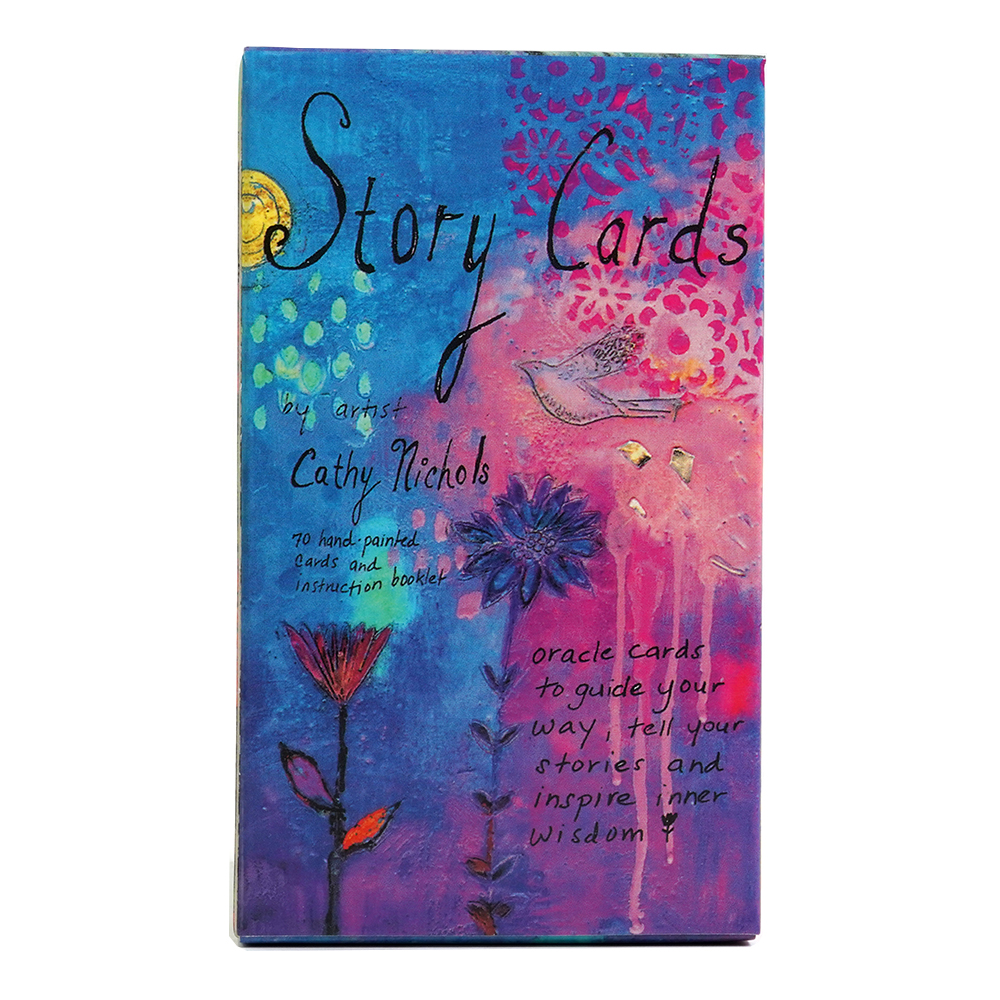 Story Cards
by artist
Cathy Nichols
70 hand-painted
cards and
instruction booklet
oracle cards
to guide your
way, tell your
stories and
inspire inner
wisdom